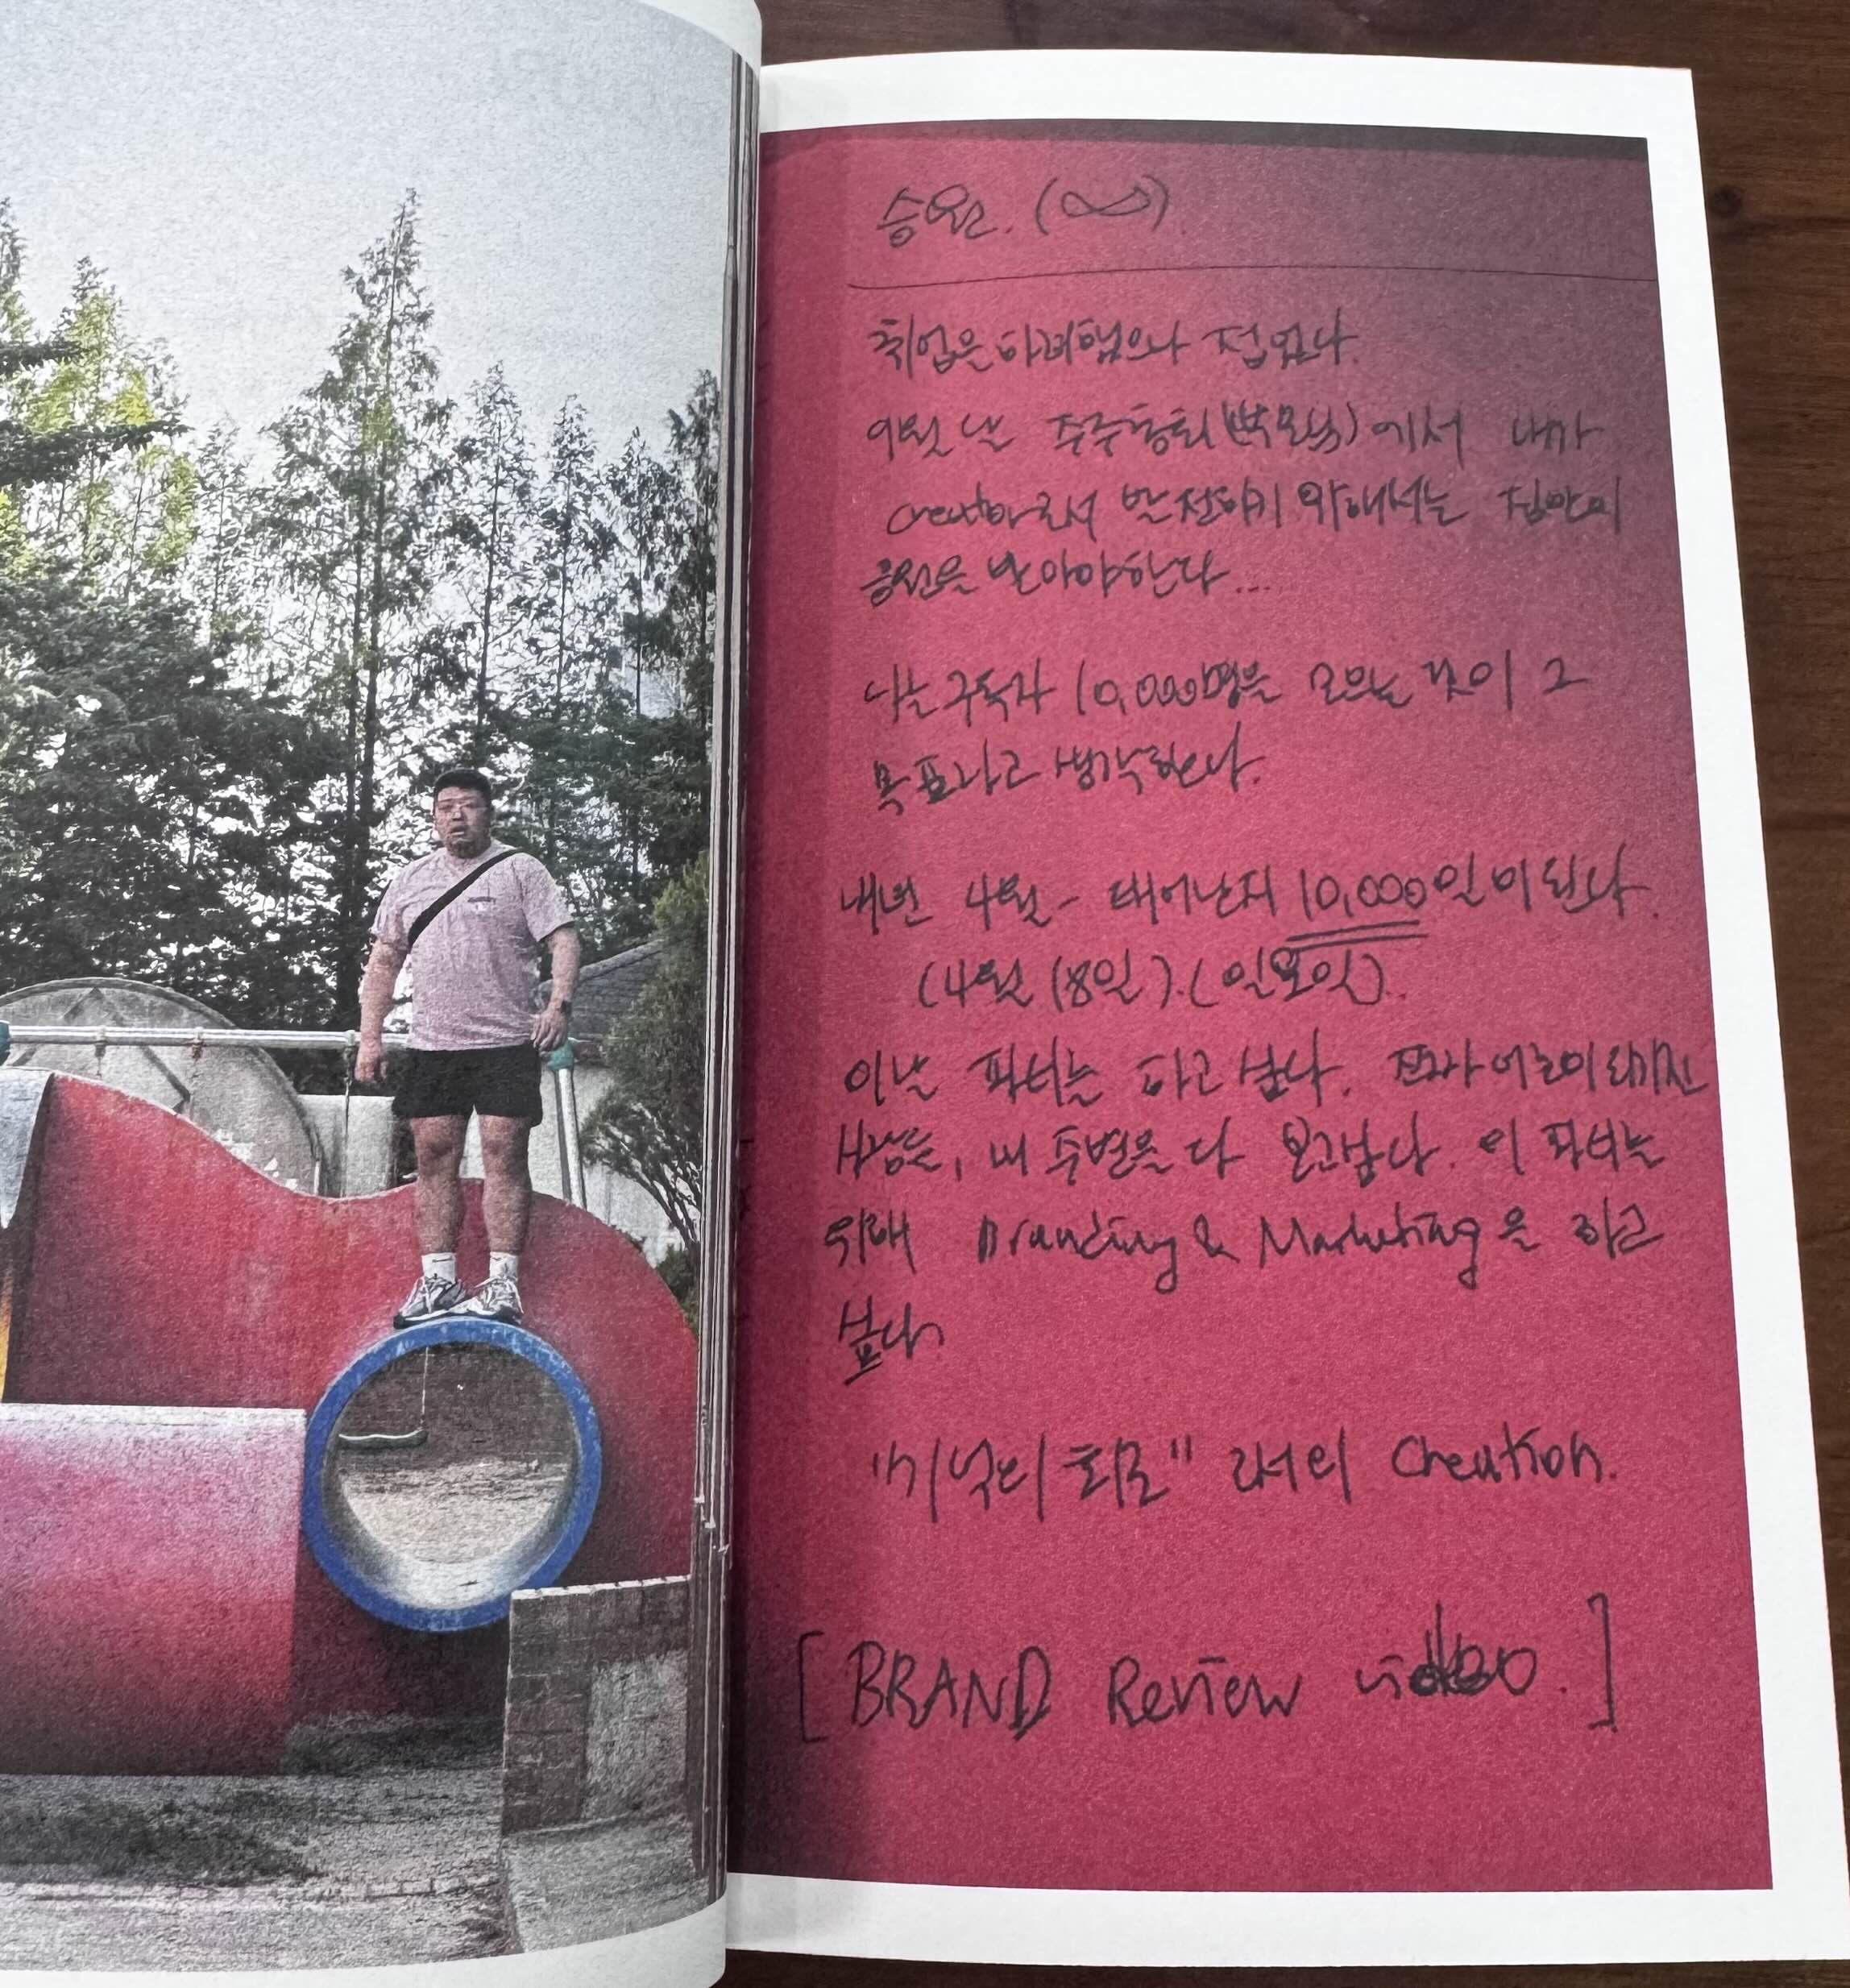 승원. (∞).
취업은 다비헴으나 접었다.
9월 난 주주총회( )에서 내가
creator로서 발전하기 위해서는 집안의
응원을 받아야한다...
나는 구독자 10,000명을 모으는 것이 그
목표라고 생각한다.
내년 4월 - 태어난지 10,000일이 된다.
(4월 18일). (일요일).
이날 파티는 하고 싶다. 전과 어른이 되기전
사람들, 내 주변을 다 모으고싶다. 이 파티는
위해 Branding & Marketing을 하고
싶다.
"기억의 회로" 라서의 Creation.
[BRAND Review video.]